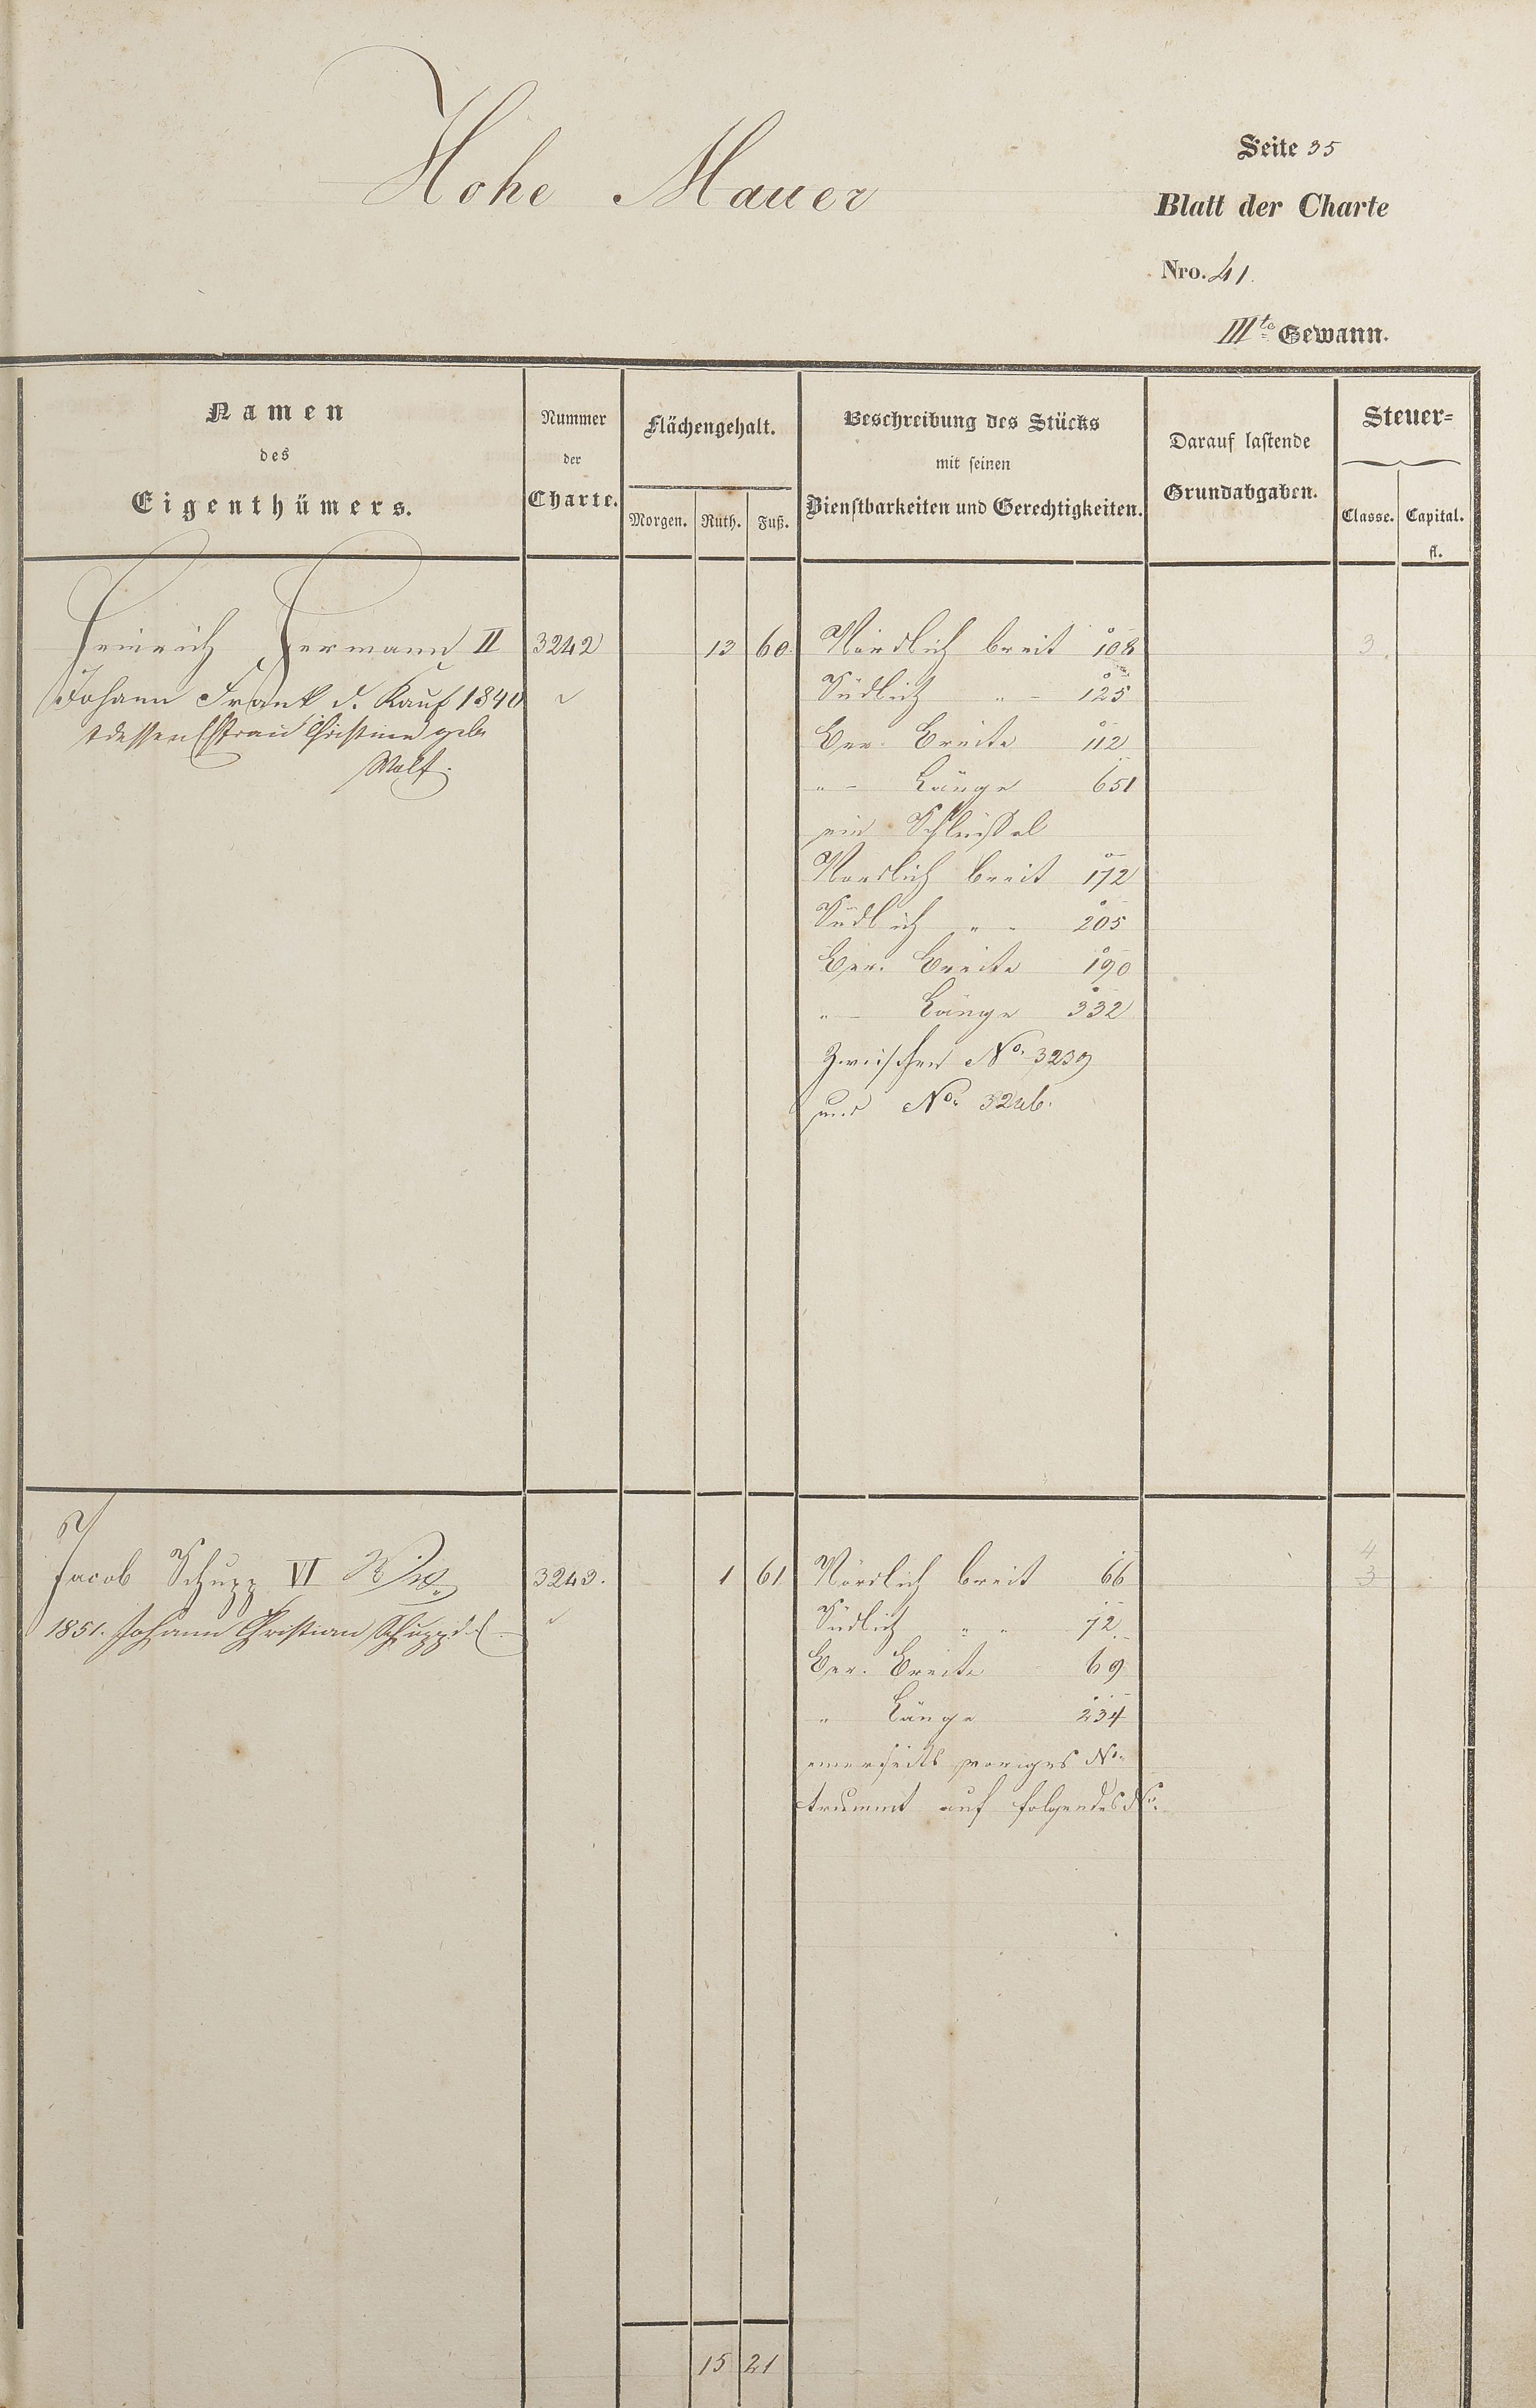 Hohe Mauer
Seite 35
Blatt der Charte
Nro. 41.
IIIte Gewann.
Namen
des
Eigenthümers.
Nummer
der
Charte.
Flächengehalt.
Morgen. Ruth. Fuß.
Beschreibung des Stücks
mit seinen
Dienstbarkeiten und Gerechtigkeiten.
Darauf lastende
Grundabgaben.
Steuer=
Classe. Capital.
fl.
Heinrich Hermann II 3242 13 60. Nördlich breit 108 3.
Johann Frank d. Kauf 1840 Südlich " - 125
u dessen Ehfrau Christine geb. Ber. Breite 112
Wolf. "- Länge 651
ein Schlüssel
Nördlich breit 172
Südlich " - 205
Ber. Breite 190
"- Länge 332
Zwischen No. 3239
und No. 3246.
Jacob Schupp VI 3243. 1 61. Nördlich breit 66 4 3
1851. Johann Christian Schupp Südlich " " 72
Ber. Breite 69
" Länge 234
einerseits voriges No.
trummt auf folgendes No.
15 21